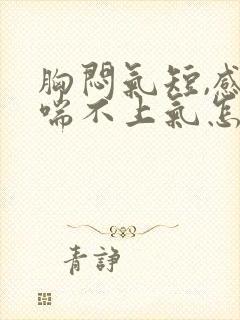 胸悶氣短,感
喘不上氣怎
青諍